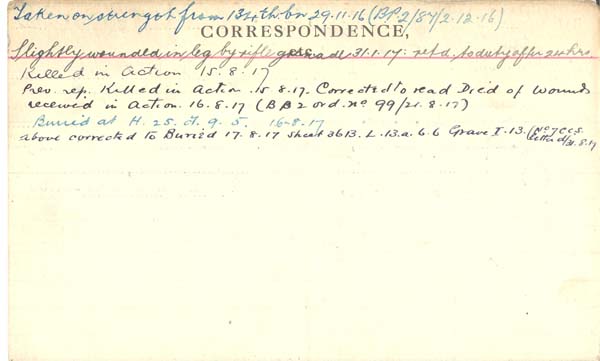 Taken on strength from 134th. bn 29.11.16 (BP2/87/2.12.16)
CORRESPONDENCE,
Slightly wounded in leg by rifle 31.1.17. ret'd. to duty after 24 hrs
Killed in Action 15.8.17
Prev. rep. Killed in Action 15.8.17. Corrected to read Died of Wounds
received in Action. 16.8.17 (BB2 ord. No 99/21.8.17)
Buried at H. 25. d. 9. 5. 16-8-17
above corrected to Buried 17.8.17 Sheet 36B. L.13.a.6.6 Grave I.13. (No 7 CCS
letter d/31.8.17